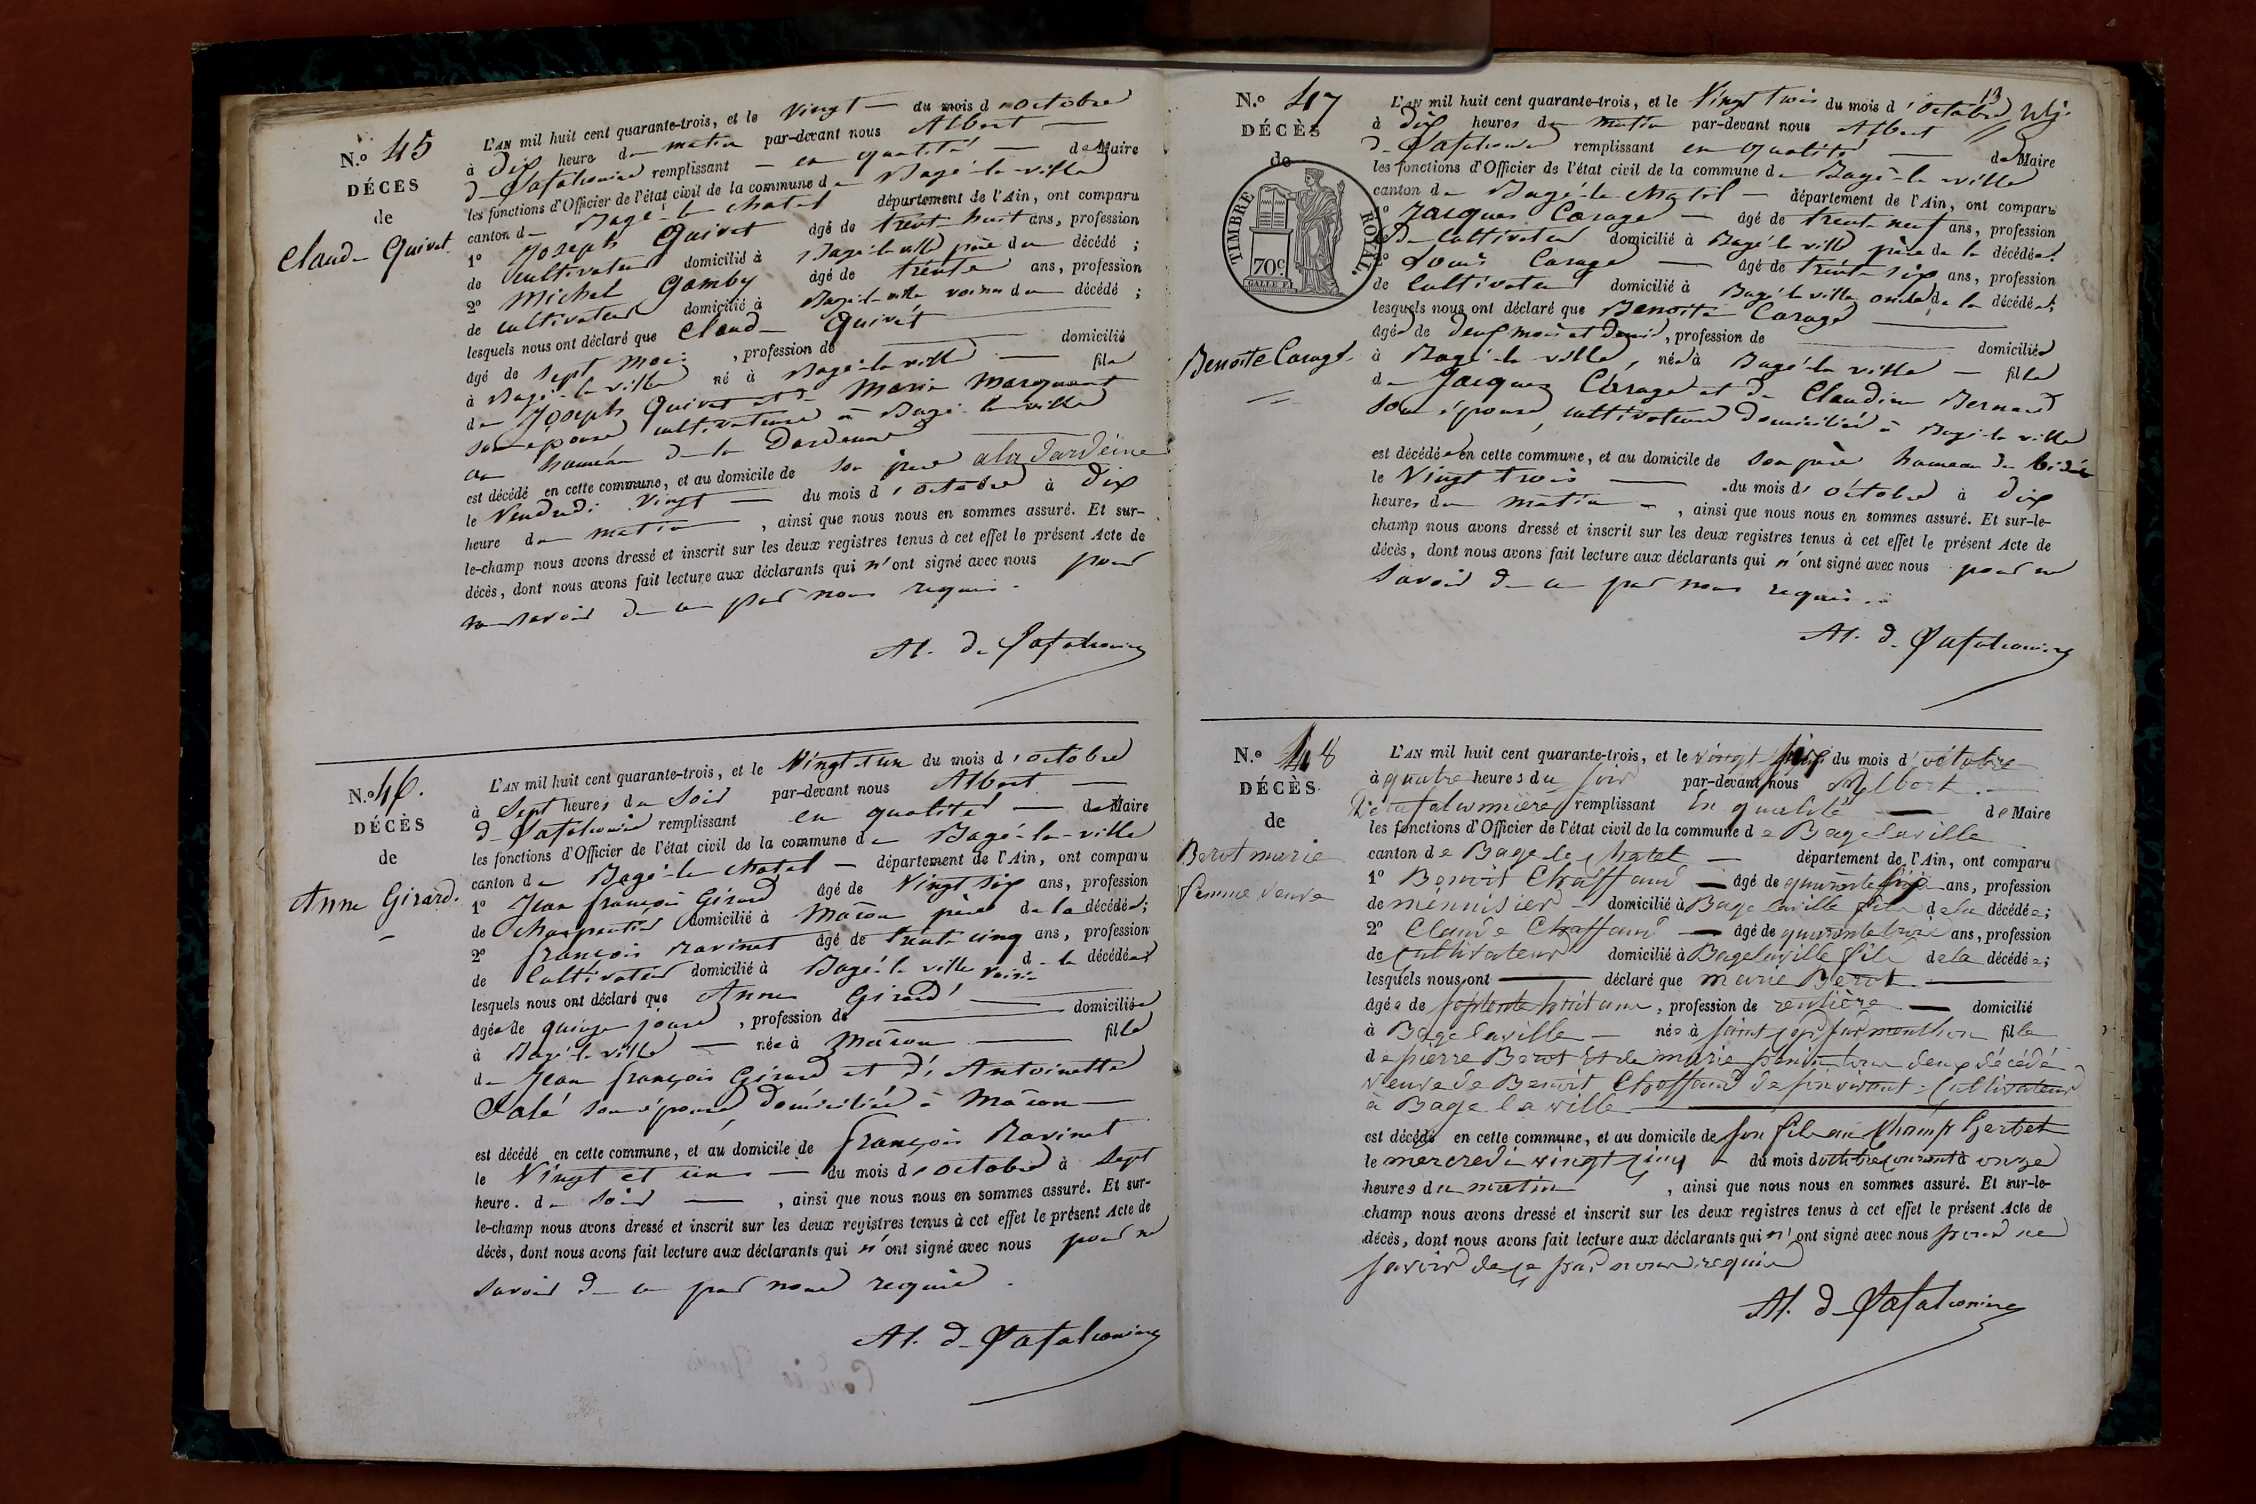 N.º 45
DÉCES
de
Claude Quivet
L'AN mil huit cent quarante-trois, et le Vingt du mois d'octobre
à dix heure du matin par-devant nous Albert
de Lafalconnière remplissant en qualité de Maire
les fonctions d'Officier de l'état civil de la commune de Bagé-la-ville
canton de Bagé-le-chatel département de l'Ain, ont comparu
1º Joseph Quivet âgé de trente huit ans, profession
de cultivateur domicilié à Bagé-la-ville père du décédé ;
2º Michel Gamby âgé de trente ans, profession
de cultivateur domicilié à Bagé-la-ville voisin du décédé ;
lesquels nous ont déclaré que Claude Quivet
âgé de sept mois , profession de domicilié
à Bagé-la-ville né à Bagé-la-ville fils
de Joseph Quivet et de Marie Marquant
son épouse cultivateurs à Bagé-la-ville
au hameau de la
est décédé en cette commune, et au domicile de son père
le Vendredi Vingt du mois d'octobre à dix
heure du matin , ainsi que nous nous en sommes assuré. Et sur-
le-champ nous avons dressé et inscrit sur les deux registres tenus à cet effet le présent Acte de
décès, dont nous avons fait lecture aux déclarants qui n'ont signé avec nous pour
ne savoir de ce par nous requis.
Al. de Lafalconnière
N.º 46.
DÉCÈS
de
Anne Girard.
L'AN mil huit cent quarante-trois, et le Vingt et un du mois d'octobre
à Sept heures du Soir par-devant nous Albert
de Lafalconnière remplissant en qualité de Maire
les fonctions d'Officier de l'état civil de la commune de Bagé-la-ville
canton de Bagé-le-chatel département de l'Ain, ont comparu
1º Jean françois Girard âgé de Vingt six ans, profession
de charpentier domicilié à Mâcon père de la décédée;
2º françois Ravinet âgé de trente cinq ans, profession
de Cultivateur domicilié à Bagé-la-ville voisin de la décédée
lesquels nous ont déclaré que Anne Girard
âgée de quinze jours , profession de domiciliée
à Bagé-la-ville née à Mâcon fille
de Jean françois Girard et d'Antoinette
son épouse, domiciliés à Mâcon
est décédé en cette commune, et au domicile de françois Ravinet
le Vingt et un du mois d'octobre à Sept
heure. du Soir , ainsi que nous nous en sommes assuré. Et sur-
le-champ nous avons dressé et inscrit sur les deux registres tenus à cet effet le présent Acte de
décès, dont nous avons fait lecture aux déclarants qui n'ont signé avec nous pour ne
savoir de ce par nous requis.
Al. de Lafalconnière
N.º 47
DÉCÈS
de
TIMBRE ROYAL.
70c
Benoite Carage.
13
L'AN mil huit cent quarante-trois, et le Vingt trois du mois d'octobre
à dix heures du matin par-devant nous Albert
de Lafalconnière remplissant en qualité de Maire
les fonctions d'Officier de l'état civil de la commune de Bagé-la-ville
canton de Bagé-le-Chatel département de l'Ain, ont comparu
1º Jacques Carage âgé de trente neuf ans, profession
de Cultivateur domicilié à Bagé-la-ville père de la décédée;
2º Louis Carage âgé de trente six ans, profession
de Cultivateur domicilié à Bagé-la-ville oncle de la décédée;
lesquels nous ont déclaré que Benoite Carage
âgée de deux mois et demi, profession de domiciliée
à Bagé-la-ville, née à Bagé-la-ville fille
de Jacques Carage et de Claudine Bernard
son épouse, cultivateurs domiciliés à Bagé-la-ville
est décédée en cette commune, et au domicile de son père hameau de
le Vingt trois du mois d'octobre à dix
heures du matin , ainsi que nous nous en sommes assuré. Et sur-le-
champ nous avons dressé et inscrit sur les deux registres tenus à cet effet le présent Acte de
décès, dont nous avons fait lecture aux déclarants qui n'ont signé avec nous pour ne
savoir de ce par nous requis.
Al. de Lafalconnière
N.º 48
DÉCÈS
de
Berot marie
femme veuve
L'AN mil huit cent quarante-trois, et le vingt six du mois d'octobre
à quatre heures du soir par-devant nous Albert
De Lafalconnière remplissant En qualité de Maire
les fonctions d'Officier de l'état civil de la commune de Bagelaville
canton de Bage le chatel département de l'Ain, ont comparu
1º Benoit Chaffaud âgé de quarante six ans, profession
de menuisier domicilié à Bage laville fils de la décédée;
2º Claude Chaffaud âgé de quarante trois ans, profession
de Cultivateur domicilié à Bagelaville fils de la décédée;
lesquels nous ont déclaré que marie Berot
âgée de septente huit ans, profession de rentière domicilié
à Bagelaville née à fille
de pierre Berot Et de marie tous deux décédé
veuve de Benoit Chaffaud de son vivant Cultivateur
à Bage la ville
est décédé en cette commune, et au domicile de son fils au Champ
le mercredi vingt cinq du mois d'octobre courant à onze
heures du matin , ainsi que nous nous en sommes assuré. Et sur-le-
champ nous avons dressé et inscrit sur les deux registres tenus à cet effet le présent Acte de
décès, dont nous avons fait lecture aux déclarants qui n'ont signé avec nous pour ne
savoir de ce par nous requis
Al. de Lafalconnière